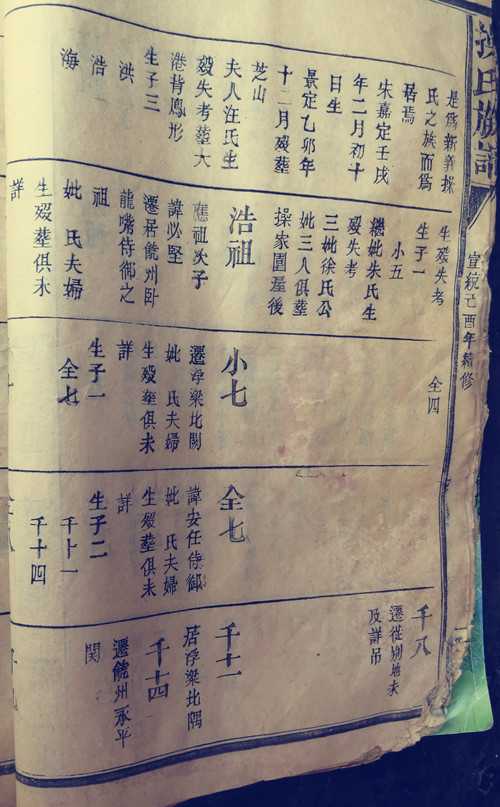 操氏族譜
宣統己酉年續修
是為新義操
氏之族而為
居焉
朱嘉定壬戌
年二月初十
日生
景定乙卯年
十二月歿葬
芝山
夫人汪氏生
歿失考葬大
港背鳳形
生子三
洪
浩
海
生歿失考
生子一
小五
繼妣朱氏生
歿失考
三妣徐氏公
妣三人俱葬
操家園屋後
浩祖
應祖次子
諱必堅
遷居饒州臥
龍嘴侍御之
祖
妣 氏夫婦
生歿葬俱未
詳
全四
小七
遷浮梁北關
妣 氏夫婦
生歿葬俱未
詳
生子一
全七
全七
諱安任侍御
妣 氏夫婦
生歿葬俱未
詳
生子二
千十一
千十四
千八
遷徙別地未
及詳吊
千十一
居浮梁北隅
千十四
遷饒州永平
関